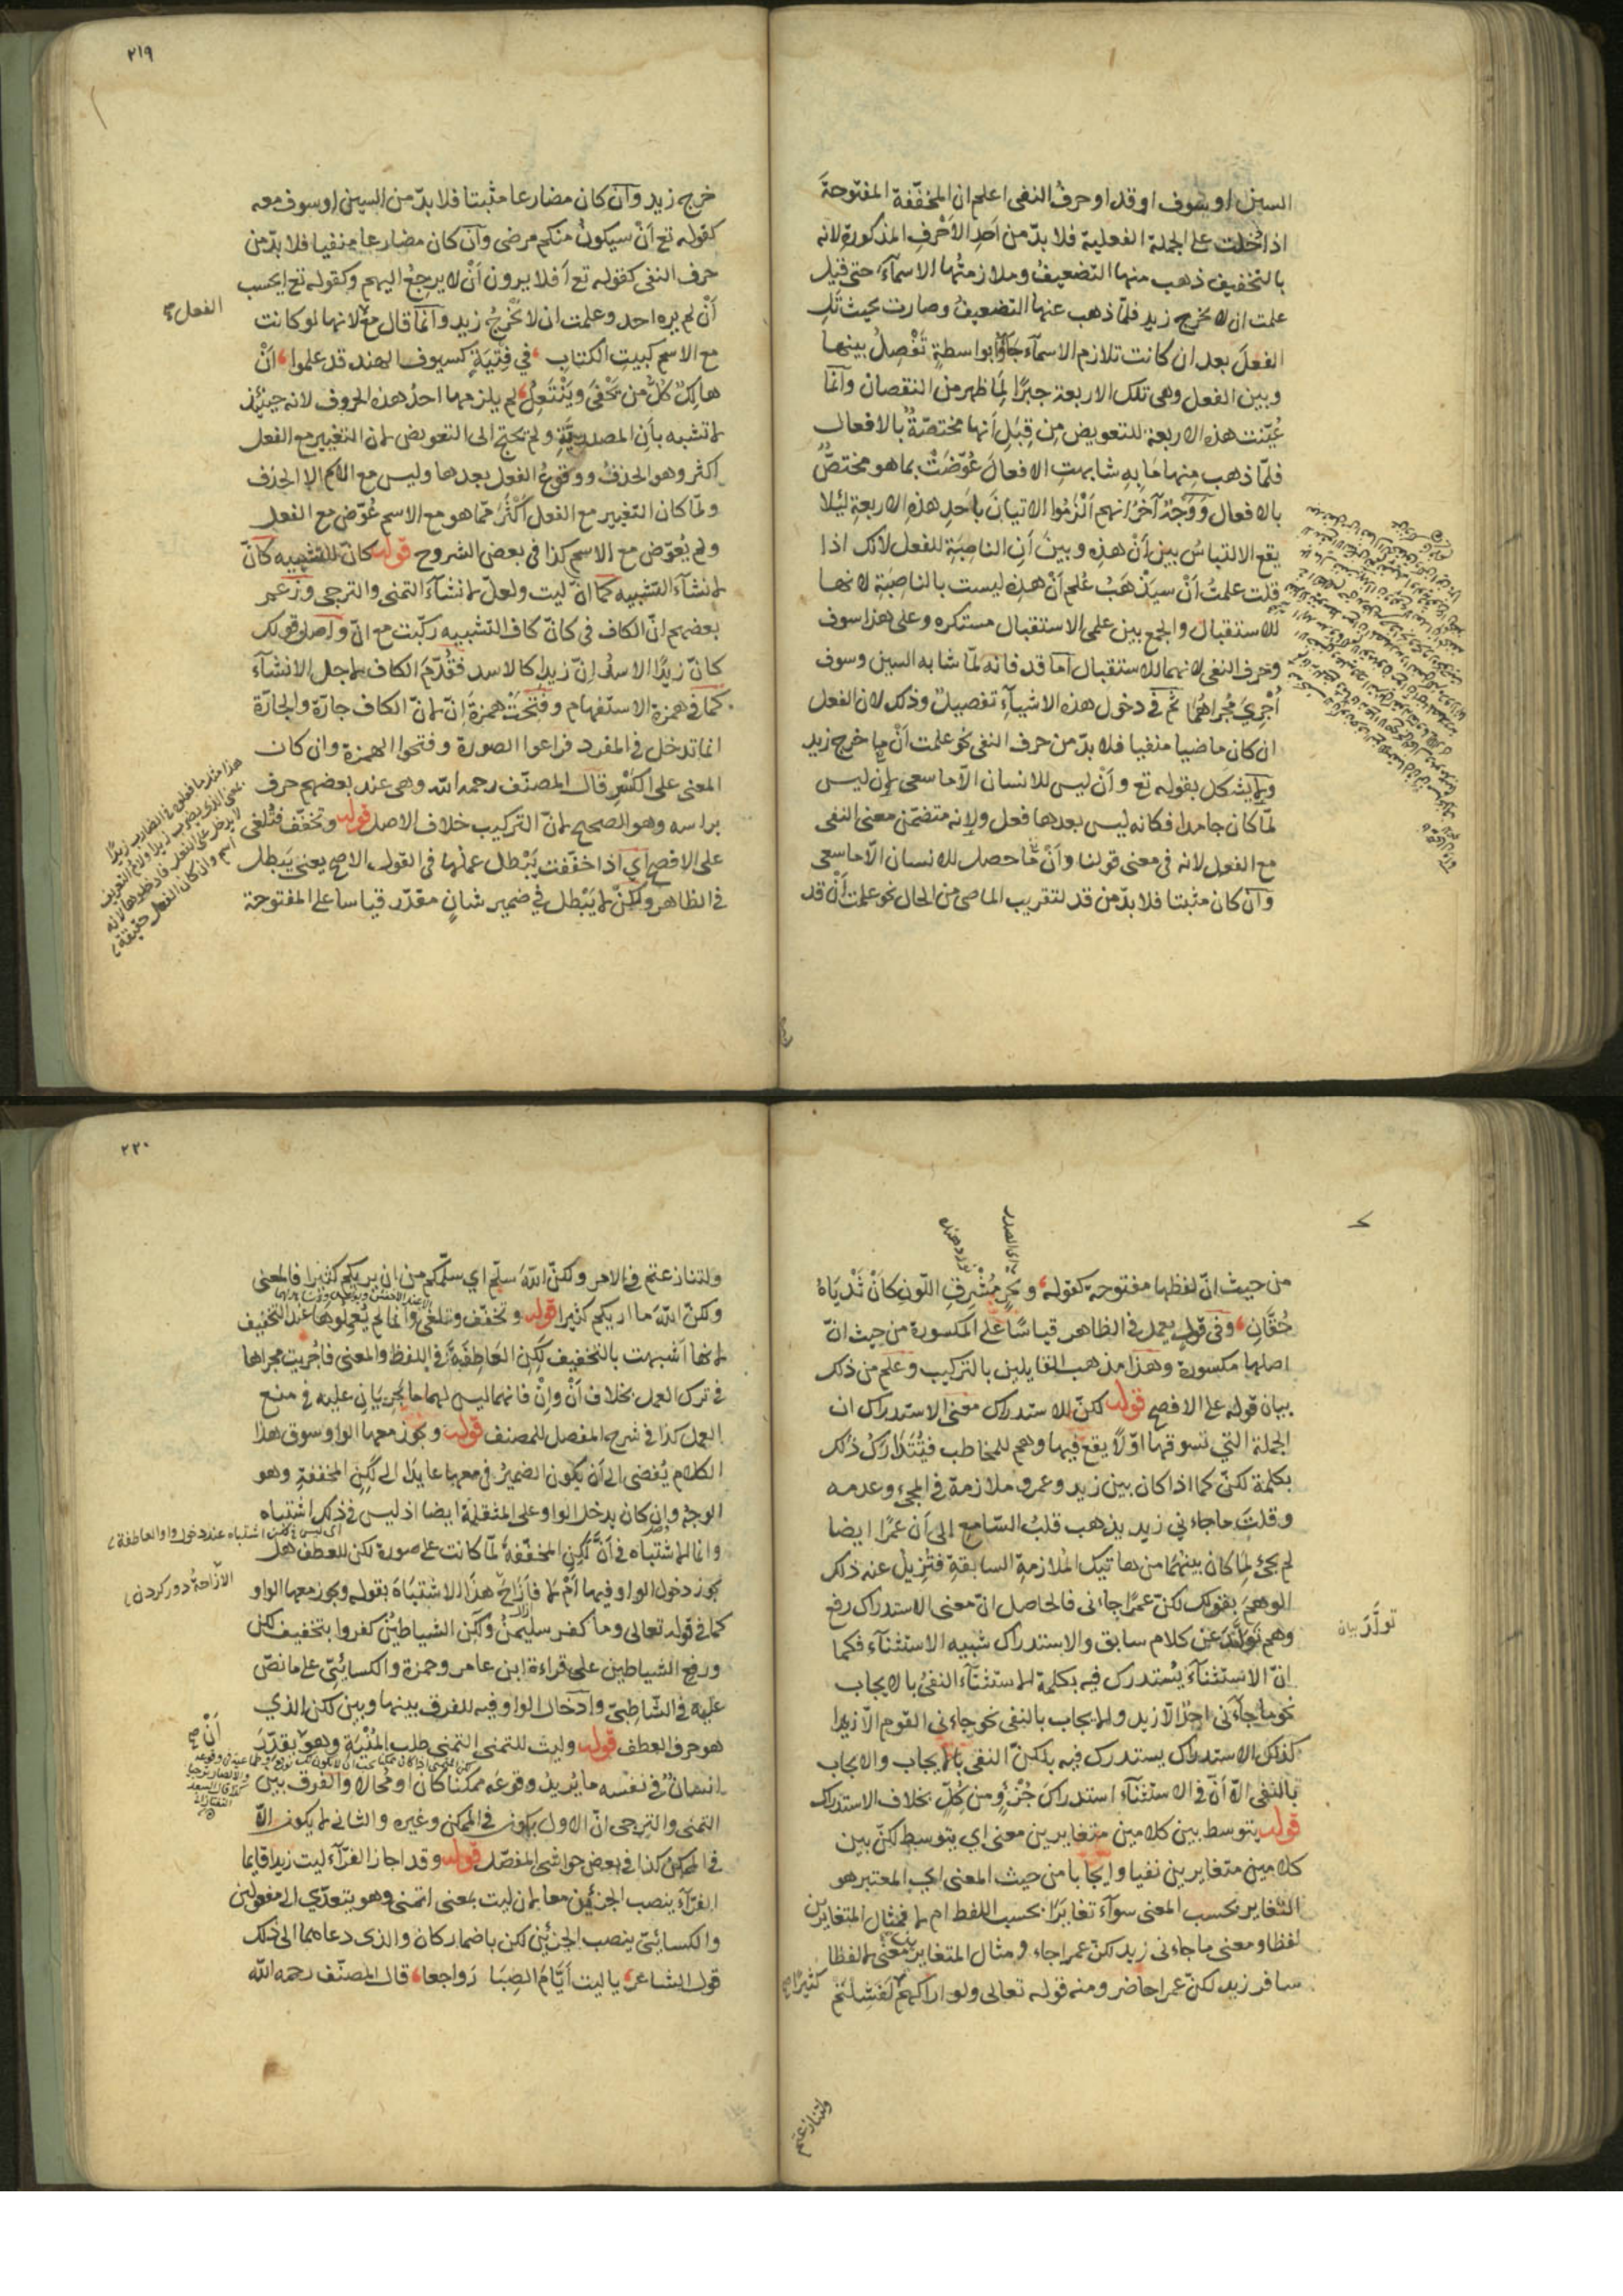 السين او سوف او قد او حرف النفى اعلم ان المخففة المفتوحة
اذا دخلت على الجملة الفعلية فلا بدّ من اَحَدِ الاَحْرفِ المذكورة لانه
بالتخفيف ذهب منها التضعيفُ وملازمتُها الاسمآءَ حتى قيل
علمت ان لا يخرج زيد فلمّا ذهب عنها التضعيفُ وصارت بحيث تَلِى
الفعلَ بعد ان كانت تلازم الاسمآء جَآؤا بواسطةٍ تَفْصِلُ بينها
وبين الفعل وهى تلك الاربعة جبرًا لِمَا ظهر من النقصان وانّما
عُيّنت هذه الاربعة للتعويض مِن قِبَلِ اَنها مختصّةٌ بالافعال
فلمّا ذهب مِنها مَا بِهِ شابهتِ الافعالَ عُوّضَتْ بما هو مختصٌّ
بالافعال وَوَجْهٌ آخرُ انهم اَلْزَمُوا الاتيانَ بِاَحَدِ هذهِ الاربعةِ لِئلا
يقع الالتباسُ بين أَنْ هذِهِ وبينَ أَنِ الناصِبَةِ للفعل لانك اذا
قلت علمتُ أَنْ سيَذْهَبُ عُلم أَنْ هذِه ليست بالناصِبَة لانها
للاستقبال والجمع بين علمى الاستقبال مستكره وعلى هذا سوف
وحرف النفى لانهما للاستقبال اما قد فانه لمّا شابه السين وسوف
اُجْرِىَ مُجْراهُمَا ثم فى دخول هذه الاشيآءِ تفصيلٌ وذلك لان الفعل
ان كان ماضيا منفيا فلا بدّ من حرف النفى نحو علمت اَنْ ما خرج زيد
ولا يشكل بقوله تع و اَنْ ليس للانسان الّا ما سعى لان ليس
لمّا كان جامدا فكانه ليس بعدها فعل ولانه متضمّن معنى النفى
مع الفعل لانه فى معنى قولنا وأَنْ مّا حصل للانسان الّا ما سعى
وان كان مثبتا فلا بدّ من قد لتقريب الماضى من الحال نحو علمت أَنْ قد
٢١٩
خرج زيد وان كان مضارعا مثبتا فلا بدّ من السين او سوف معه
كقوله تع اَنْ سيكونُ منكم مرضى وان كان مضارعا منفيا فلا بدّ من
حرف النفى كقوله تع اَفلا يرون اَنْ لا يرجعُ اليهم وكقوله تع ايحسب
اَنْ لم يره احد وعلمت ان لا يَخْرُجُ زيد وانما قال مع الانها لو كانت
الفعل صح
مع الاسم كبيتِ الكتابِ في فِتْيَةٍ كسيوف الهند قد علموا اَنْ
هالِكٌ كُلُّ من يَحْفَى ويَنْتَعِلُ لم يلزمها احدُ هذه الحروف لانه حينئذ
لا تشبه بأنِ المصدريّةِ ولم تحتج الى التعويض لان التغيير مع الفعل
اكثر وهو الحذفُ ووقوعُ الفعل بعدها وليس مع الاسم الا الحذف
ولمّا كان التغيير مع الفعل أكثرُ ممّا هو مع الاسم عُوّض مع الفعل
ولم يُعوّض مع الاسم كذا فى بعض الشروح قوله كانّ للتشبيه كانّ
لانشآء التشبيه كما انّ ليت ولعلّ لانشآء التمنى والترجى وزعم
بعضهم انّ الكاف فى كانّ كاف التشبيه ركّبت مع انّ واصل قولك
كانّ زيدًا الاسدُ انّ زيدا كالاسد فقُدّمَ الكاف لاجل الانشآء
كما فى همزة الاستفهام وفُتِحَتْ همزةُ اِنّ لانّ الكاف جارّة والجارّة
انما تدخل فى المفرد فراعوا الصورة وفتحوا الهمزة وان كان
المعنى على الكَسْرِ قال المصنّف رحمه الله وهى عند بعضهم حرف
براسه وهو الصحيح لانّ التركيب خلاف الاصل قوله وتُخفّف فتُلغى
على الافصح اي اذا خفّفت يَبْطل عملُها فى القول الاصح يعنى يَبطل
فى الظاهر ولكنّ لا يَبْطل فى ضمير شانٍ مقدّر قياسا على المفتوحة
من حيث انّ لفظها مفتوحة كقوله ونَحْرٍ مُشْرِقِ اللّونِ كأَنْ ثَدْيَاهُ
حُقّانِ وفى قولٍ يعمل فى الظاهر قياسًا عَلَى المكسورة من حيث انّ
اصلها مكسورة وهذا مذهب القايلين بالتركيب وعلم من ذلك
بيان قوله على الافصح قوله لكنّ للاستدراك معنى الاستدراك ان
الجملة التي تسوقها اوّلًا يقع فيها وهم للمخاطب فيُتَدَارَكُ ذلك
بكلمة لكنّ كما اذا كان بين زيد وعمرو ملازمة فى المجئ وعدمه
وقلتَ ما جاءنى زيد يذهب قلبُ السّامع الى أن عمرًا ايضا
لم يجئ لِمَا كان بينهُمَا من هاتيك المُلازمةِ السابقةِ فتُزيلُ عنه ذلك
الوهمَ بقولك لكنّ عمرًا جاءنى فالحاصل انّ معنى الاستدراك رفع
وهم تَوَلّدَ عن كلام سابق والاستدراك شبيه الاستثنآء فكما
انّ الاستثنآءَ يُستدرك فيه بكلمة الاستثنآء النفىُ بالايجاب
نحو ما جآءنى احدٌ الّا زيد والايجاب بالنفى نحو جاءنى القوم الّا زيدا
كذلك الاستدراك يستدرك فيه بلكنّ النفى بالايجاب والايجاب
بالنفى الّا اَنّ فى الاستثنآء استدراكَ جُزْءٍ من كُلٍّ بخلاف الاستدراك
قوله يتوسط بين كلامين متغايرين معنى اي يتوسط لكنّ بين
كلامين متغايرين نفيا وايجابا من حيث المعنى اي المعتبر هو
التغاير بحسب المعنى سوآء تغايرَا بحسب اللفظ ام لا فمثال المتغايرين
لفظا ومعنى ما جاءنى زيد لكنّ عمرا جاء ومثال المتغايرين معنى لا لفظا
سافر زيد لكنّ عمرا حاضر ومنه قوله تعالى ولو اراكهم لَفَشِلْتُمْ
كثيرًا صح
ولتنازعتم
٢٢٠
ولتنازعتم فى الامر ولكنّ اللهَ سلّم اي سلّمكم من ان يريكم كثيرا فالمعنى
ولكنّ اللهَ ما اريكم كثيرا قوله وتخفّف وتلغى وانما لم يُعملوها عند التخفيف
لانها اَشبهت بالتخفيف لَكِن العَاطِفَةَ فى اللفظ والمعنى فاُجريت مجراها
فى ترك العمل بخلاف أَنْ وإِنْ فانهما ليس لهما ما يَجريَانِ عليه فى منع
العمل كذا فى شرح المفصل للمصنف قوله ويجوز معها الواو سوق هذا
الكلام يُفضى الى اَن يكون الضميرُ فى معها عايدًا الى لَكِنِ المخففةِ وهو
الوجهُ وان كان يدخل الواو على المثقلة ايضا اذ ليس فى ذلك اشتباه
وانما الاشتباه فى أَنّ لَكِنِ المخفّفةَ لمّا كانت على صورة لكن للعطف هل
يجوز دخول الواو فيها أمْ لا فاَزَاحَ هذَا الاشتبَاهَ بقوله ويجوز معها الواو
الازاحة دور كردن
كما فى قوله تعالى وما كفر سليمنُ ولكنِ الشياطينُ كفروا بتخفيف لكن
ورفع الشياطين على قراءة ابن عامر وحمزة والكسائىّ على ما نصّ
عليه فى الشّاطبىّ وادخال الواو فيه للفرق بينها وبين لكن الذي
هو حرف العطف قوله وليت للتمنى التمنى طلب المُنْيَةِ وهو يقدّرَ
أَنْ صح
انسانٌ فى نفسه ما يُريدُ وقوعَه ممكنا كان او مُحالا والفرق بين
التمنى والترجى انّ الاول يكون فى الممكن وغيره والثانى لا يكون الّا
فى الممكن كذا فى بعض حواشى المفصّل قوله وقد اجاز الفرّآء ليت زيدا قايما
الفرّآء ينصب الجزئين معا لان ليت بمعنى اتمنى وهو يتعدّي الى مفعولين
والكسائىّ ينصب الجزئين لكن باضمار كان والذى دعاهما الى ذلك
قول الشاعر يا ليت أَيّامَ الصِبَا رَواجعا قال المصنّف رحمه الله